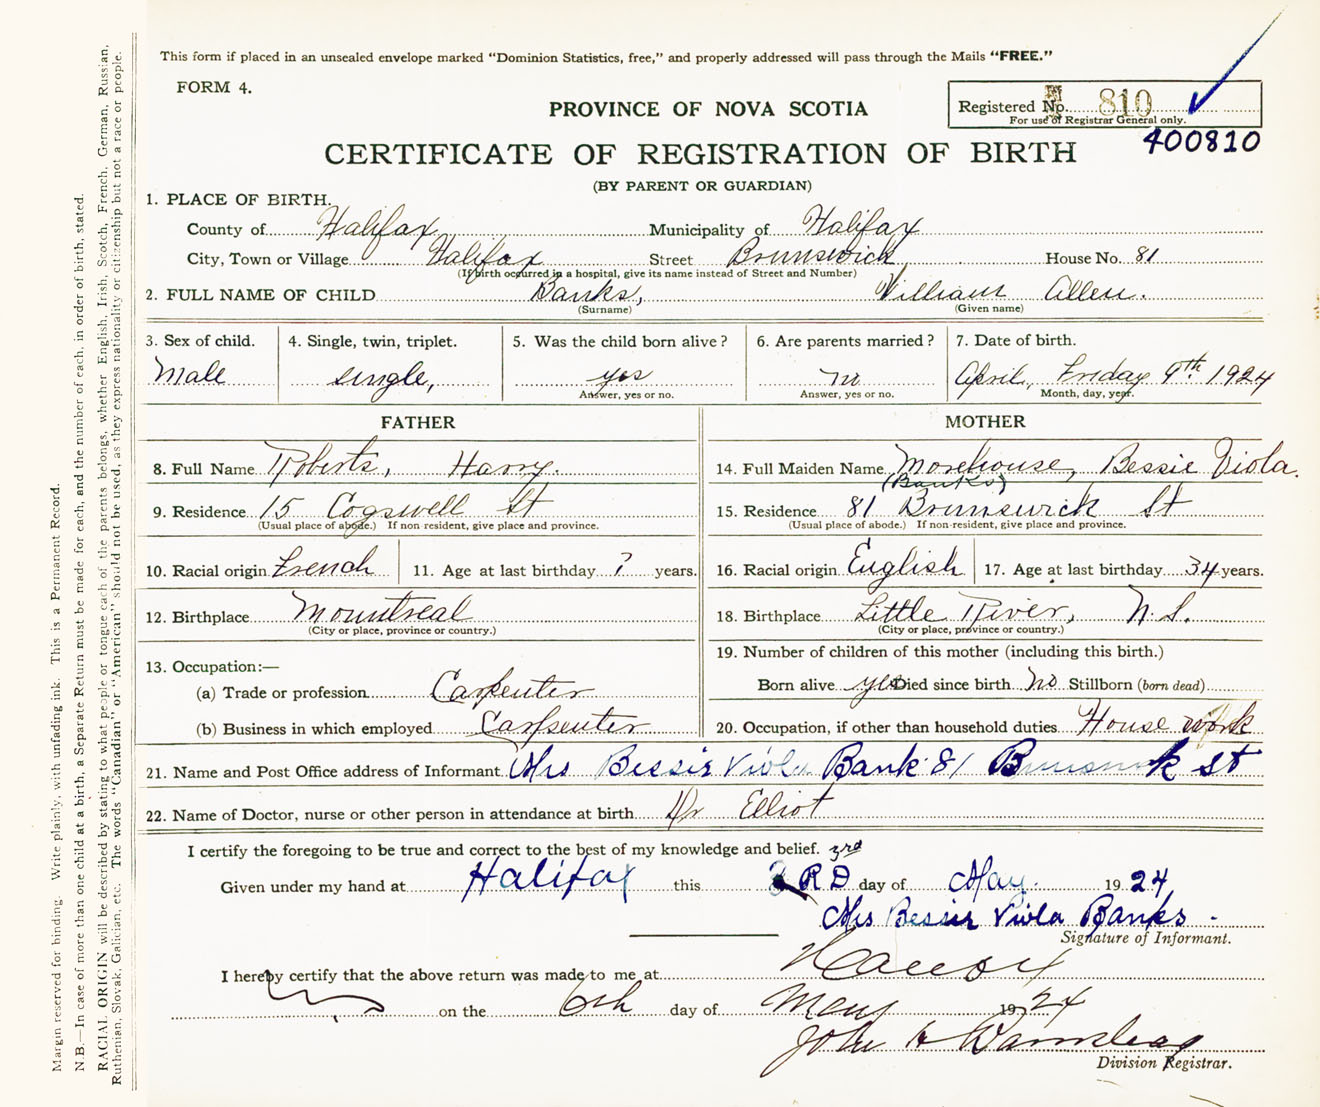 This form if placed in an unsealed envelope marked “Dominion Statistics, free,” and properly addressed will pass through the Mails “FREE.”
FORM 4.
PROVINCE OF NOVA SCOTIA
Registered No. 810
For use of Registrar General only.
400810
CERTIFICATE OF REGISTRATION OF BIRTH
(BY PARENT OR GUARDIAN)
1. PLACE OF BIRTH.
County of Halifax Municipality of Halifax
City, Town or Village Halifax Street Brunswick House No. 81
(If birth occurred in a hospital, give its name instead of Street and Number)
2. FULL NAME OF CHILD Banks, William Allen.
(Surname) (Given name)
3. Sex of child. 4. Single, twin, triplet. 5. Was the child born alive? 6. Are parents married? 7. Date of birth.
Male single, yes no April, Friday 9th 1924
Answer, yes or no. Answer, yes or no. Month, day, year.
FATHER
8. Full Name Roberts, Harry.
9. Residence 15 Cogswell St
(Usual place of abode.) If non-resident, give place and province.
10. Racial origin French 11. Age at last birthday ? years.
12. Birthplace Mountreal
(City or place, province or country.)
13. Occupation:—
(a) Trade or profession Carpenter
(b) Business in which employed Carpenter
MOTHER
14. Full Maiden Name Morehouse, Bessie Viola.
(Banks)
15. Residence 81 Brunswick St
(Usual place of abode.) If non-resident, give place and province.
16. Racial origin English 17. Age at last birthday 34 years.
18. Birthplace Little River, N.S.
(City or place, province or country.)
19. Number of children of this mother (including this birth.)
Born alive yes Died since birth no Stillborn (born dead)
20. Occupation, if other than household duties House work
21. Name and Post Office address of Informant Mrs Bessie Viola Bank 81 Brunswick St
22. Name of Doctor, nurse or other person in attendance at birth Dr Elliot
I certify the foregoing to be true and correct to the best of my knowledge and belief. 3rd
Given under my hand at Halifax this 3 RD day of May 1924
Mrs Bessie Viola Banks
Signature of Informant.
I hereby certify that the above return was made to me at Halifax
on the 6th day of May 1924
John A
Division Registrar.
Margin reserved for binding. Write plainly, with unfading ink. This is a Permanent Record.
N.B.—In case of more than one child at a birth, a Separate Return must be made for each, and the number of each, in order of birth, stated.
RACIAL ORIGIN will be described by stating to what people or tongue each of the parents belongs, whether English, Irish, Scotch, French, German, Russian,
Ruthenian, Slovak, Galician, etc. The words “Canadian” or “American” should not be used, as they express nationality or citizenship but not a race or people.